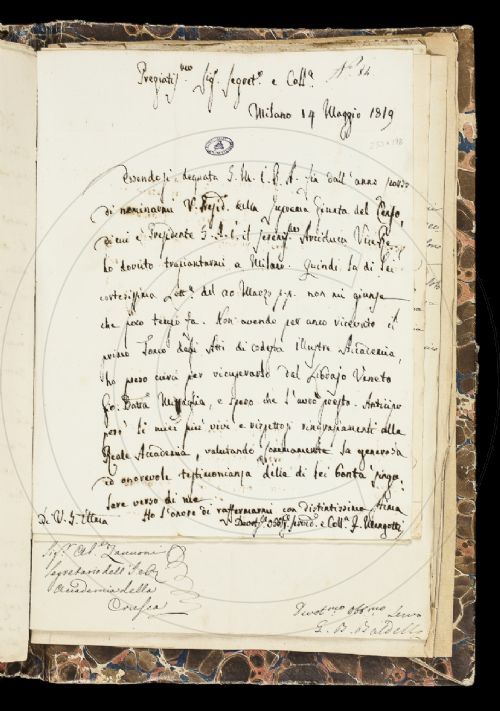 Pregiatis.mo Sig.r Segret.o e Coll.a
N.o 84
Milano 14 Maggio 1819
Essendosi degnata S. M. I. R. A. fin dall'anno passo
di nominarmi V. Presid. della Suprema Giunta del Censo,
di cui è Presidente S. A. I. il Sereniss.mo Arciduca Vice-Re,
ho dovuto traslantarmi a Milano. Quindi la di Lei
cortesissima Lett.a del 20 Marzo p.p. non mi giunse
che poco tempo fa. Non avendo per anco ricevuto il
primo Tomo degli Atti di codesta illustre Accademia,
ho preso cura per ricuperarlo dal Librajo Veneto
Gio. Batta Missiaglia, e spero che l'avrò presto. Anticipo
però i miei più vivi e rispettosi ringraziamenti alla
Reale Accademia, valutando sommamente la generosa
ed onorevole testimonianza della di lei bontà singo-
lare verso di me.
Ho l'onore di raffermarmi con distintissima stima
Di V. S. Ill.ma
Devot.mo Obb.mo Servid.e e Coll.a F. Mengotti
Sig.r Ab.e Zannoni
Segretario dell'I. e R.
Accademia della
Crusca
Devot.mo obb.mo Servo
G. B. Baldelli